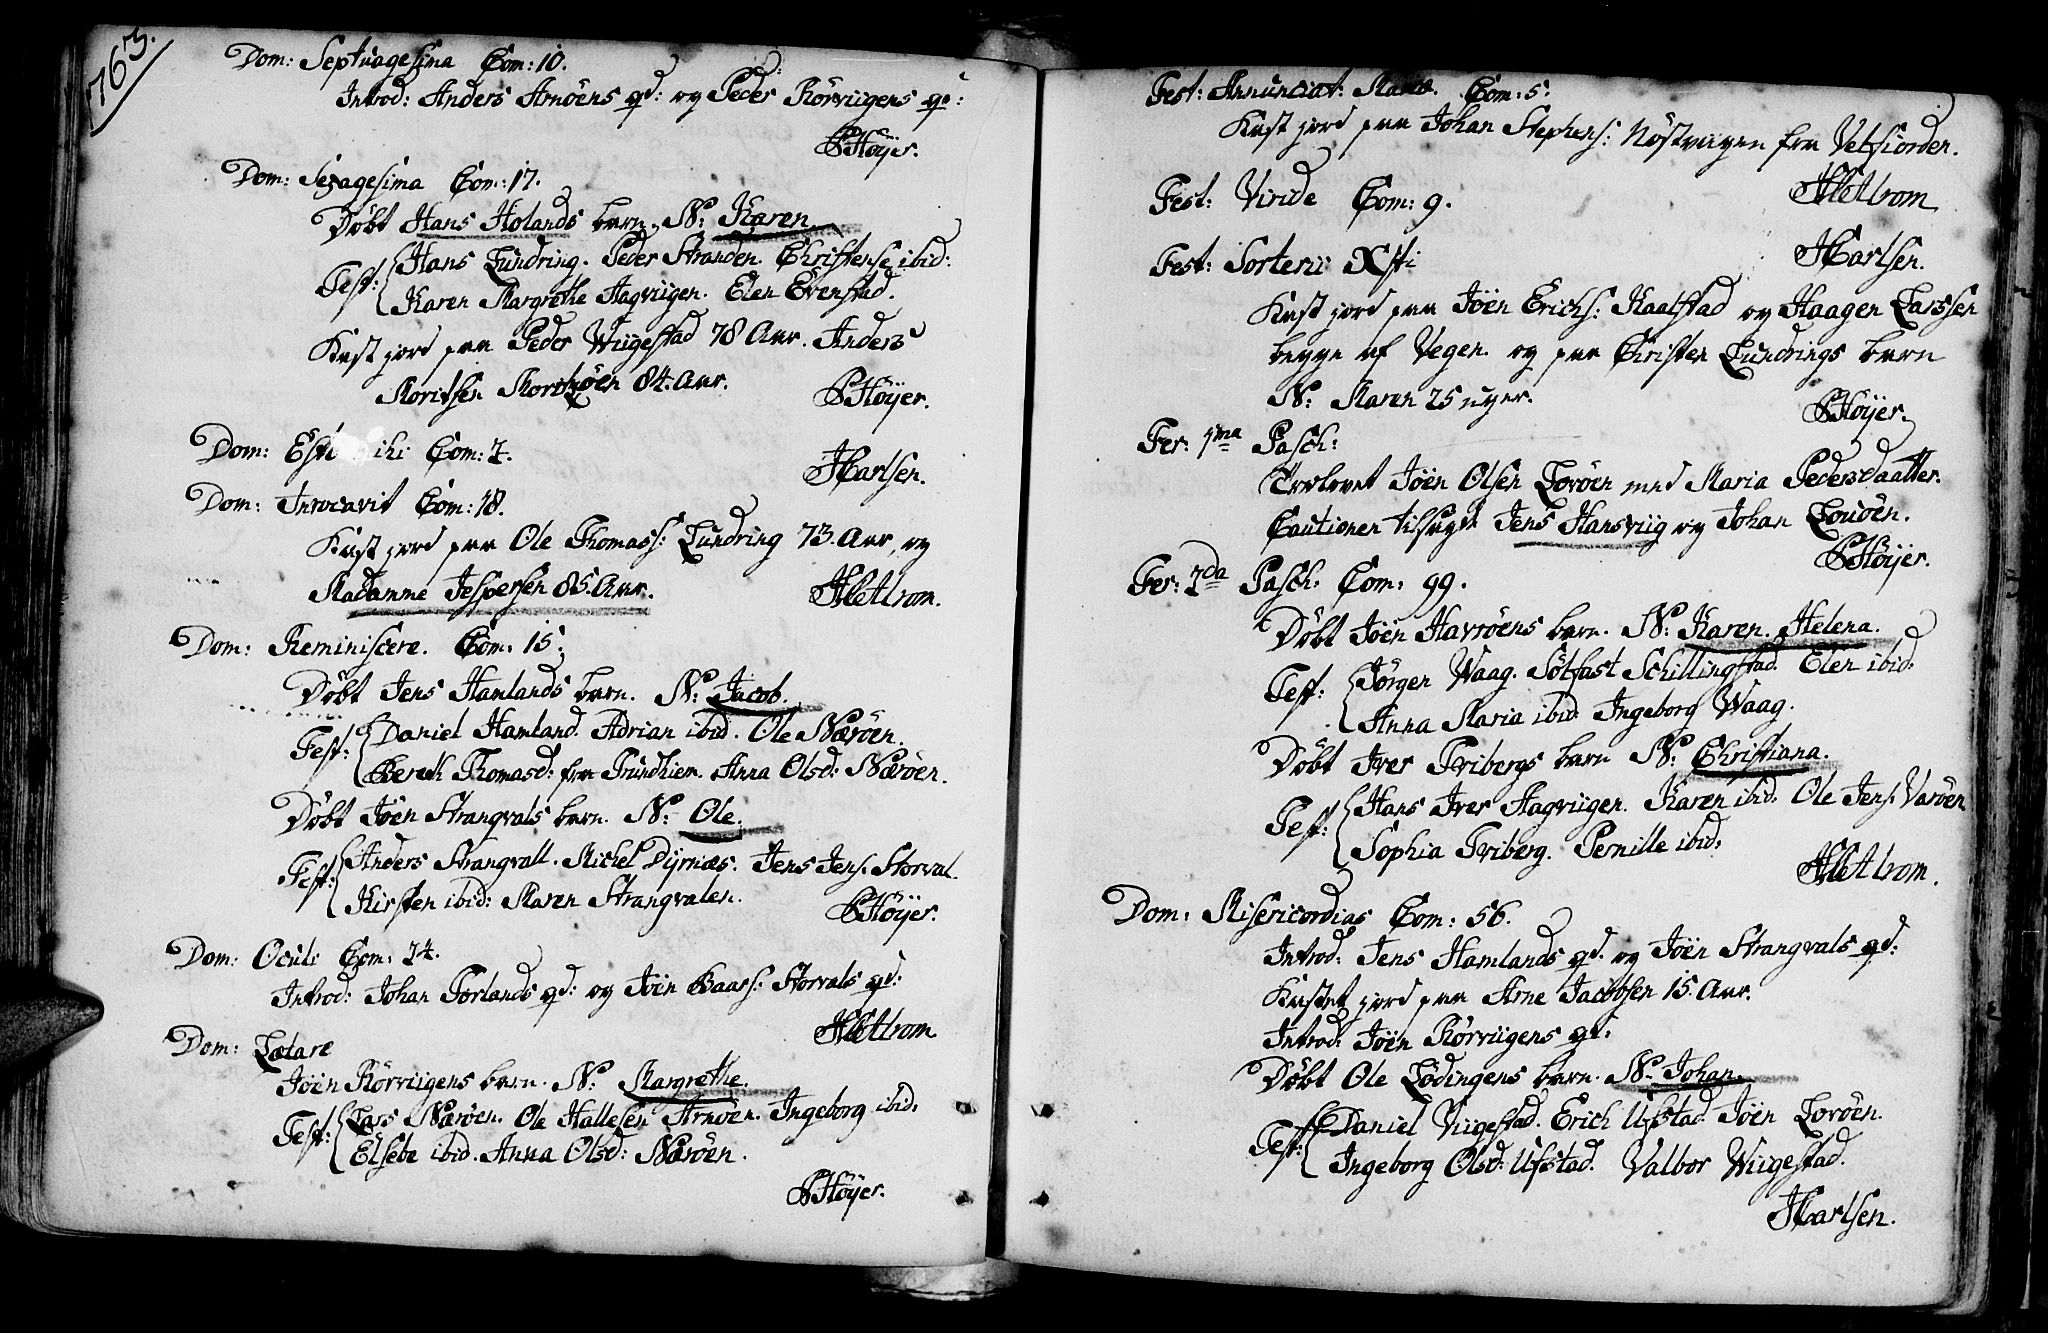 763.
Dom: Septuagesima Com: 10.
Introd: Anders Arnöens qd: og Peder Rörviigens qd:
PHöyer.
Dom: Sexagesima Com: 17.
Döbt Hans Holands barn. N: Karen
Test: Hans Lundring. Peder Stranden. Christense ibid:
Karen Margrethe Hagviigen. Elen Evenstad.
Kast jord paa Peder Wiigestad 78 Aar. Anders
Moritsen 84. Aar.
PHöyer.
Dom: Esto mihi Com: 7.
HCarlsen.
Dom: Invocavit Com: 18.
Kast jord paa Ole Thomass: Lundring 73. Aar, og
Madamme Jespersen 85. Aar.
Dom: Reminiscere. Com: 15.
Döbt Jens Hamlands barn. N: Jacob.
Test: Daniel Hamland. Adrian ibid. Ole Næröen.
Bereth Thomasd: fra Trundhiem. Anna Olsd: Næröen.
Döbt Jöen Strangvals barn. N: Ole.
Test: Anders Strangvall. Michel Dyrnæs. Jens Jens. Storval.
Kirsten ibid: Maren Strangvalen.
PHöyer.
Dom: Oculi Com: 24.
Introd: Johan Torlands qd: og Jöen Baars: Storvals qd:
Dom: Lætare
Jöen Rörviigens barn. N: Margrethe.
Test: Lars Næröen. Ole Hallesen Arnöen. Ingeborg ibid:
Elsebe ibid. Anna Olsd: Næröen.
PHöyer.
Fest: Annunciat: Mariæ. Com: 5.
Kast jord paa Johan Stephens: Nöstvaagen fra Velfiorden.
Fest: Viride Com: 9.
HCarlsen.
Fest: Xsti
Kast jord paa Jöen Erichs: Kaalstad og Haagen Larssen
begge af Vegen. og paa Christen Lundrings barn
N: Maren 25 uger.
PHöyer.
Fer: 1ma Pasch:
Trolovet Jöen Olsen Loröen med Maria Pedersdaatter.
Cautionen tilsagde Jens Hansviig og Johan
PHöyer.
Fer: 2da Pasch: Com: 99.
Döbt Jöen Havröens barn. N: Karen. Helena.
Test: Jörgen Waag. Solfast Schillingstad. Elen ibid:
Anna Maria ibid: Ingeborg Waag.
Döbt Iver Fribergs barn N: Christiana.
Test: Hans Iver Hagviigen. Karen ibid: Ole Jens. Varöen
Sophia Friberg. Pernille ibid:
Dom: Misericordias Com: 56.
Introd: Jens Hamlands qd. og Jöen Strangvals qd:
Kastet jord paa Arne Jacobsen 15. Aar.
Introd: Jöen Rörviigens qd:
Döbt Ole Lödingens barn. N: Johan.
Test: Daniel Viigestad. Erich Ufstad. Jöen Loröen.
Ingeborg Olsd: Ufstad. Valbor Wiigestad.
HCarlsen.